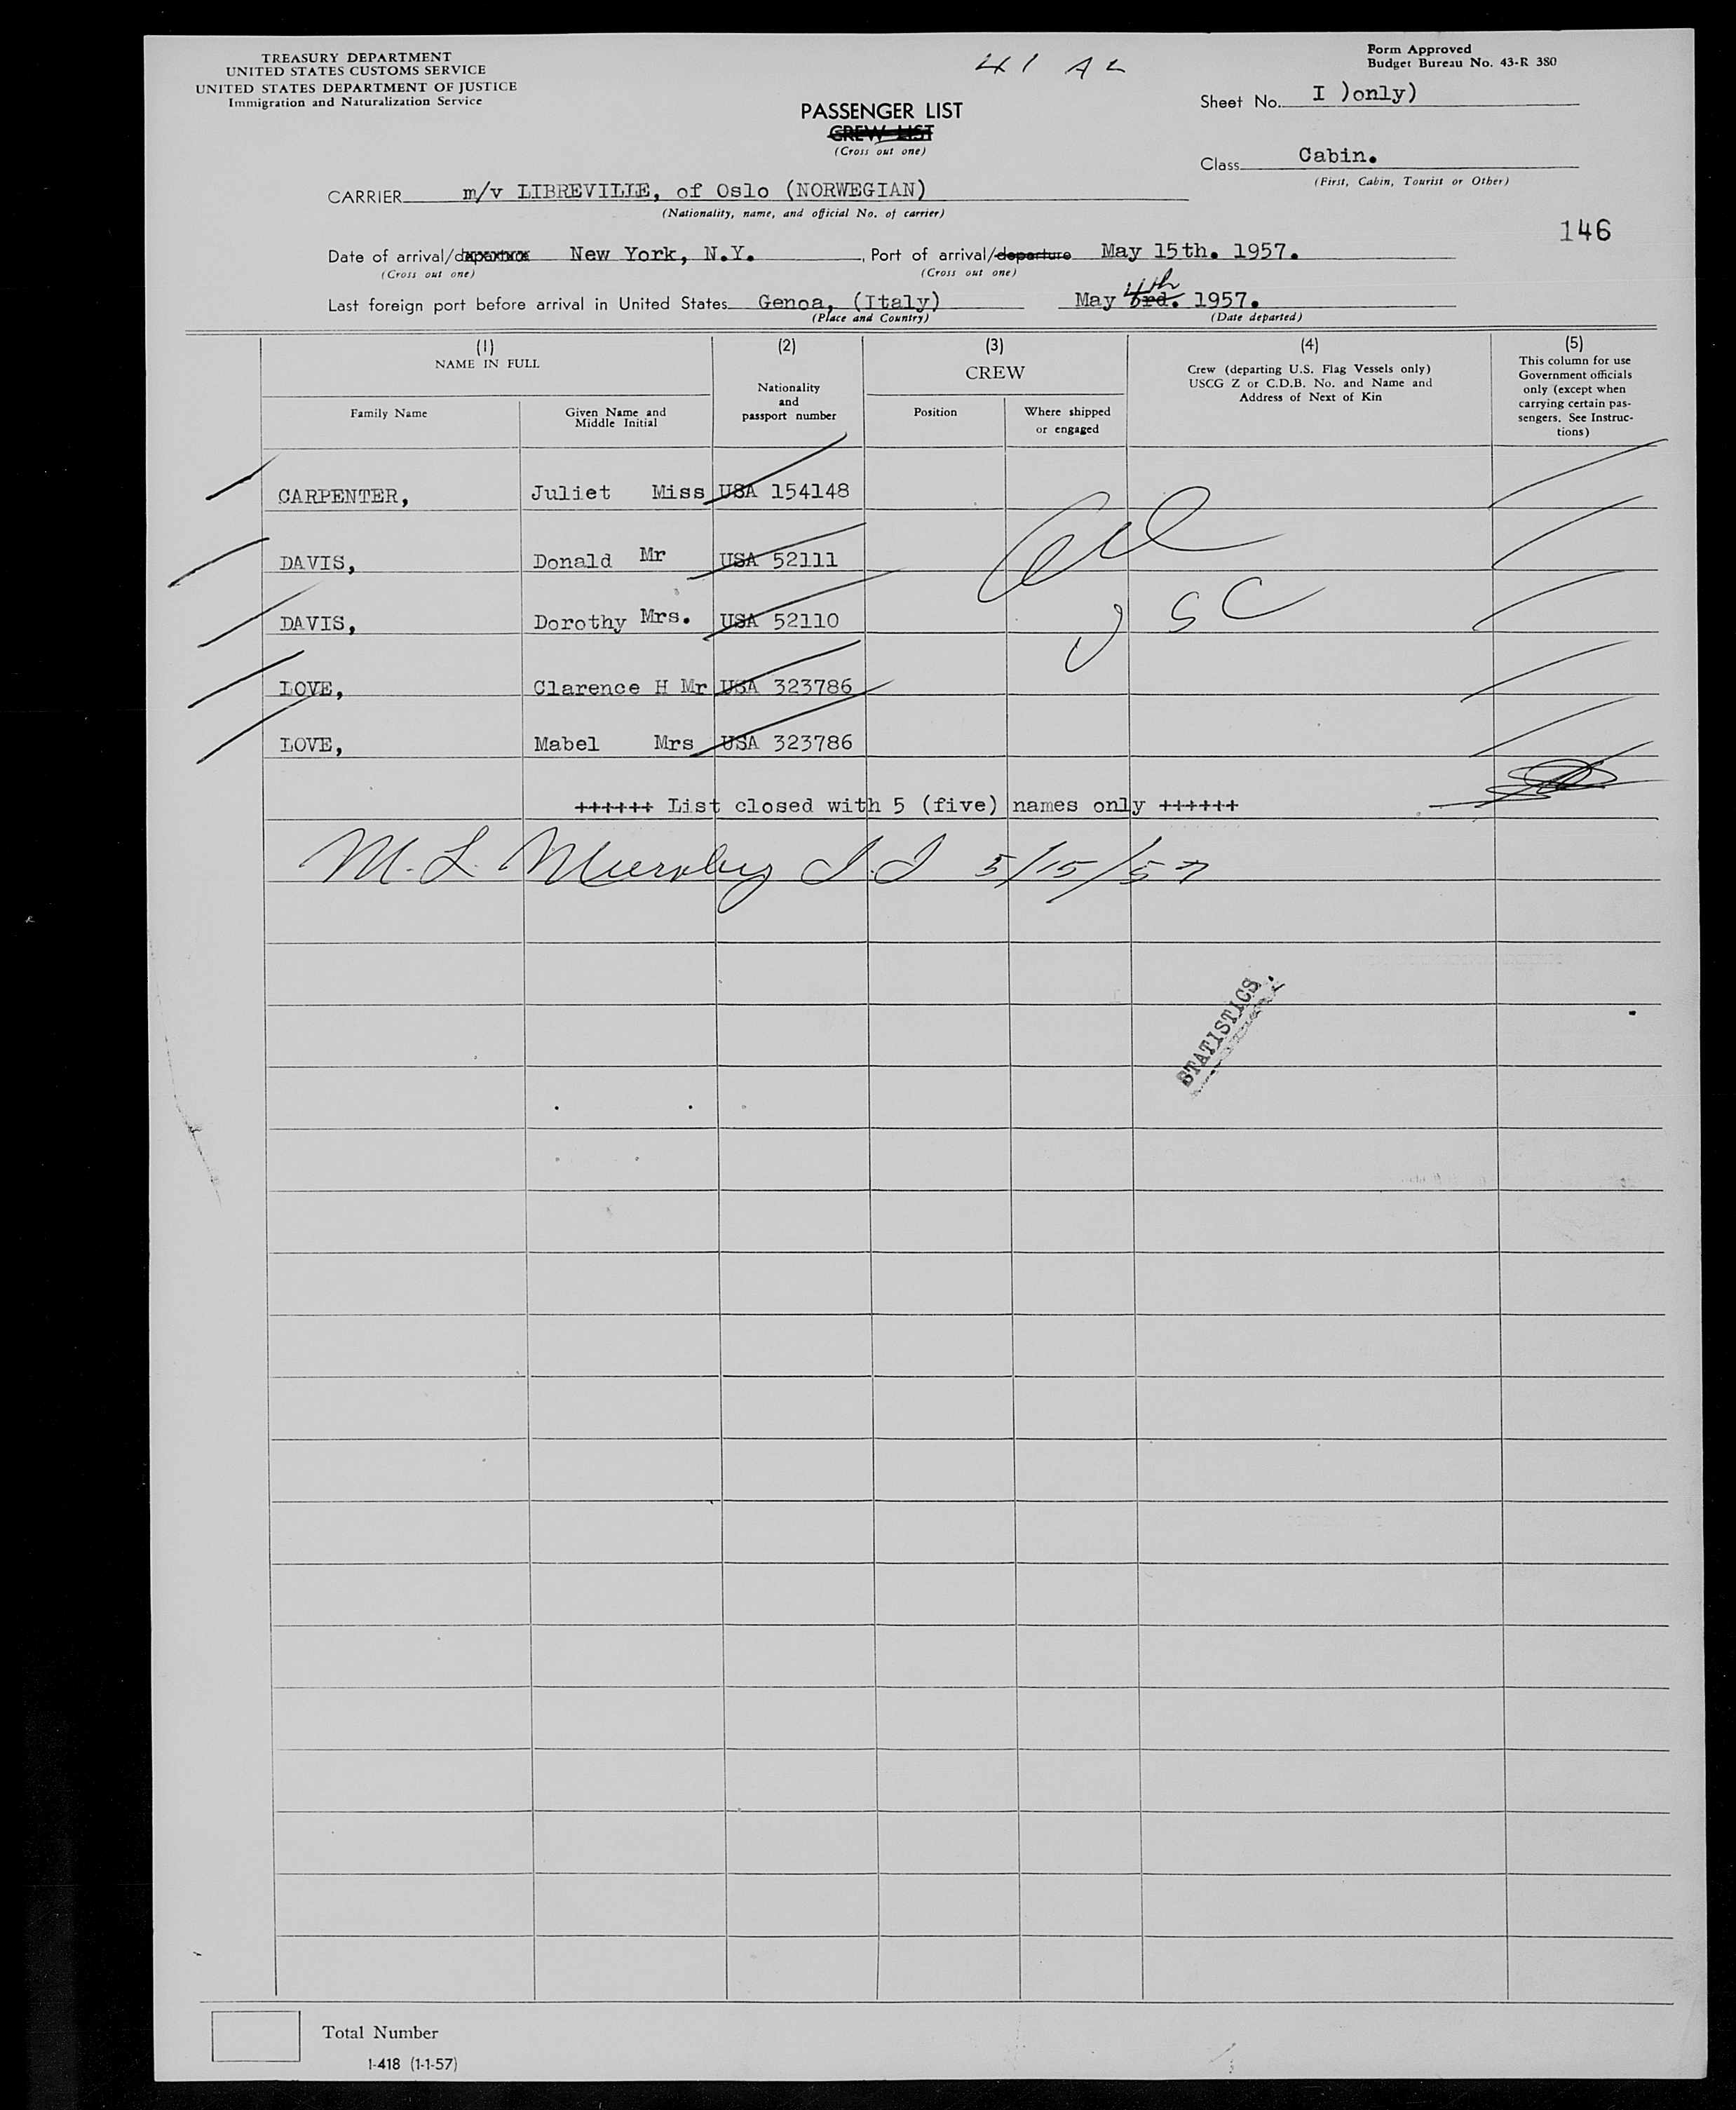 TREASURY DEPARTMENT
UNITED STATES CUSTOMS SERVICE
UNITED STATES DEPARTMENT OF JUSTICE
Immigration and Naturalization Service
41 A2
Form Approved
Budget Bureau No. 43-R 380
PASSENGER LIST
CREW LIST
(Cross out one)
Sheet No. I )only)
Class Cabin.
(First, Cabin, Tourist or Other)
CARRIER m/v LIBREVILLE, of Oslo (NORWEGIAN)
(Nationality, name, and official No. of carrier)
146
Date of arrival/departure New York, N.Y., Port of arrival/departure May 15th. 1957.
(Cross out one) (Cross out one)
Last foreign port before arrival in United States Genoa, (Italy) May 3rd. 4th 1957.
(Place and Country) (Date departed)
(1) NAME IN FULL
Family Name
Given Name and Middle Initial
(2)
Nationality and passport number
(3)
CREW
Position
Where shipped or engaged
(4)
Crew (departing U.S. Flag Vessels only)
USCG Z or C.D.B. No. and Name and
Address of Next of Kin
(5)
This column for use
Government officials
only (except when
carrying certain pas-
sengers. See Instruc-
tions)
CARPENTER, Juliet Miss USA 154148
DAVIS, Donald Mr USA 52111
DAVIS, Dorothy Mrs. USA 52110
LOVE, Clarence H Mr USA 323786
LOVE, Mabel Mrs USA 323786
All
USC
++++++ List closed with 5 (five) names only ++++++
M. L. Murphy I.I 5/15/57
STATISTICS
Total Number
I-418 (1-1-57)